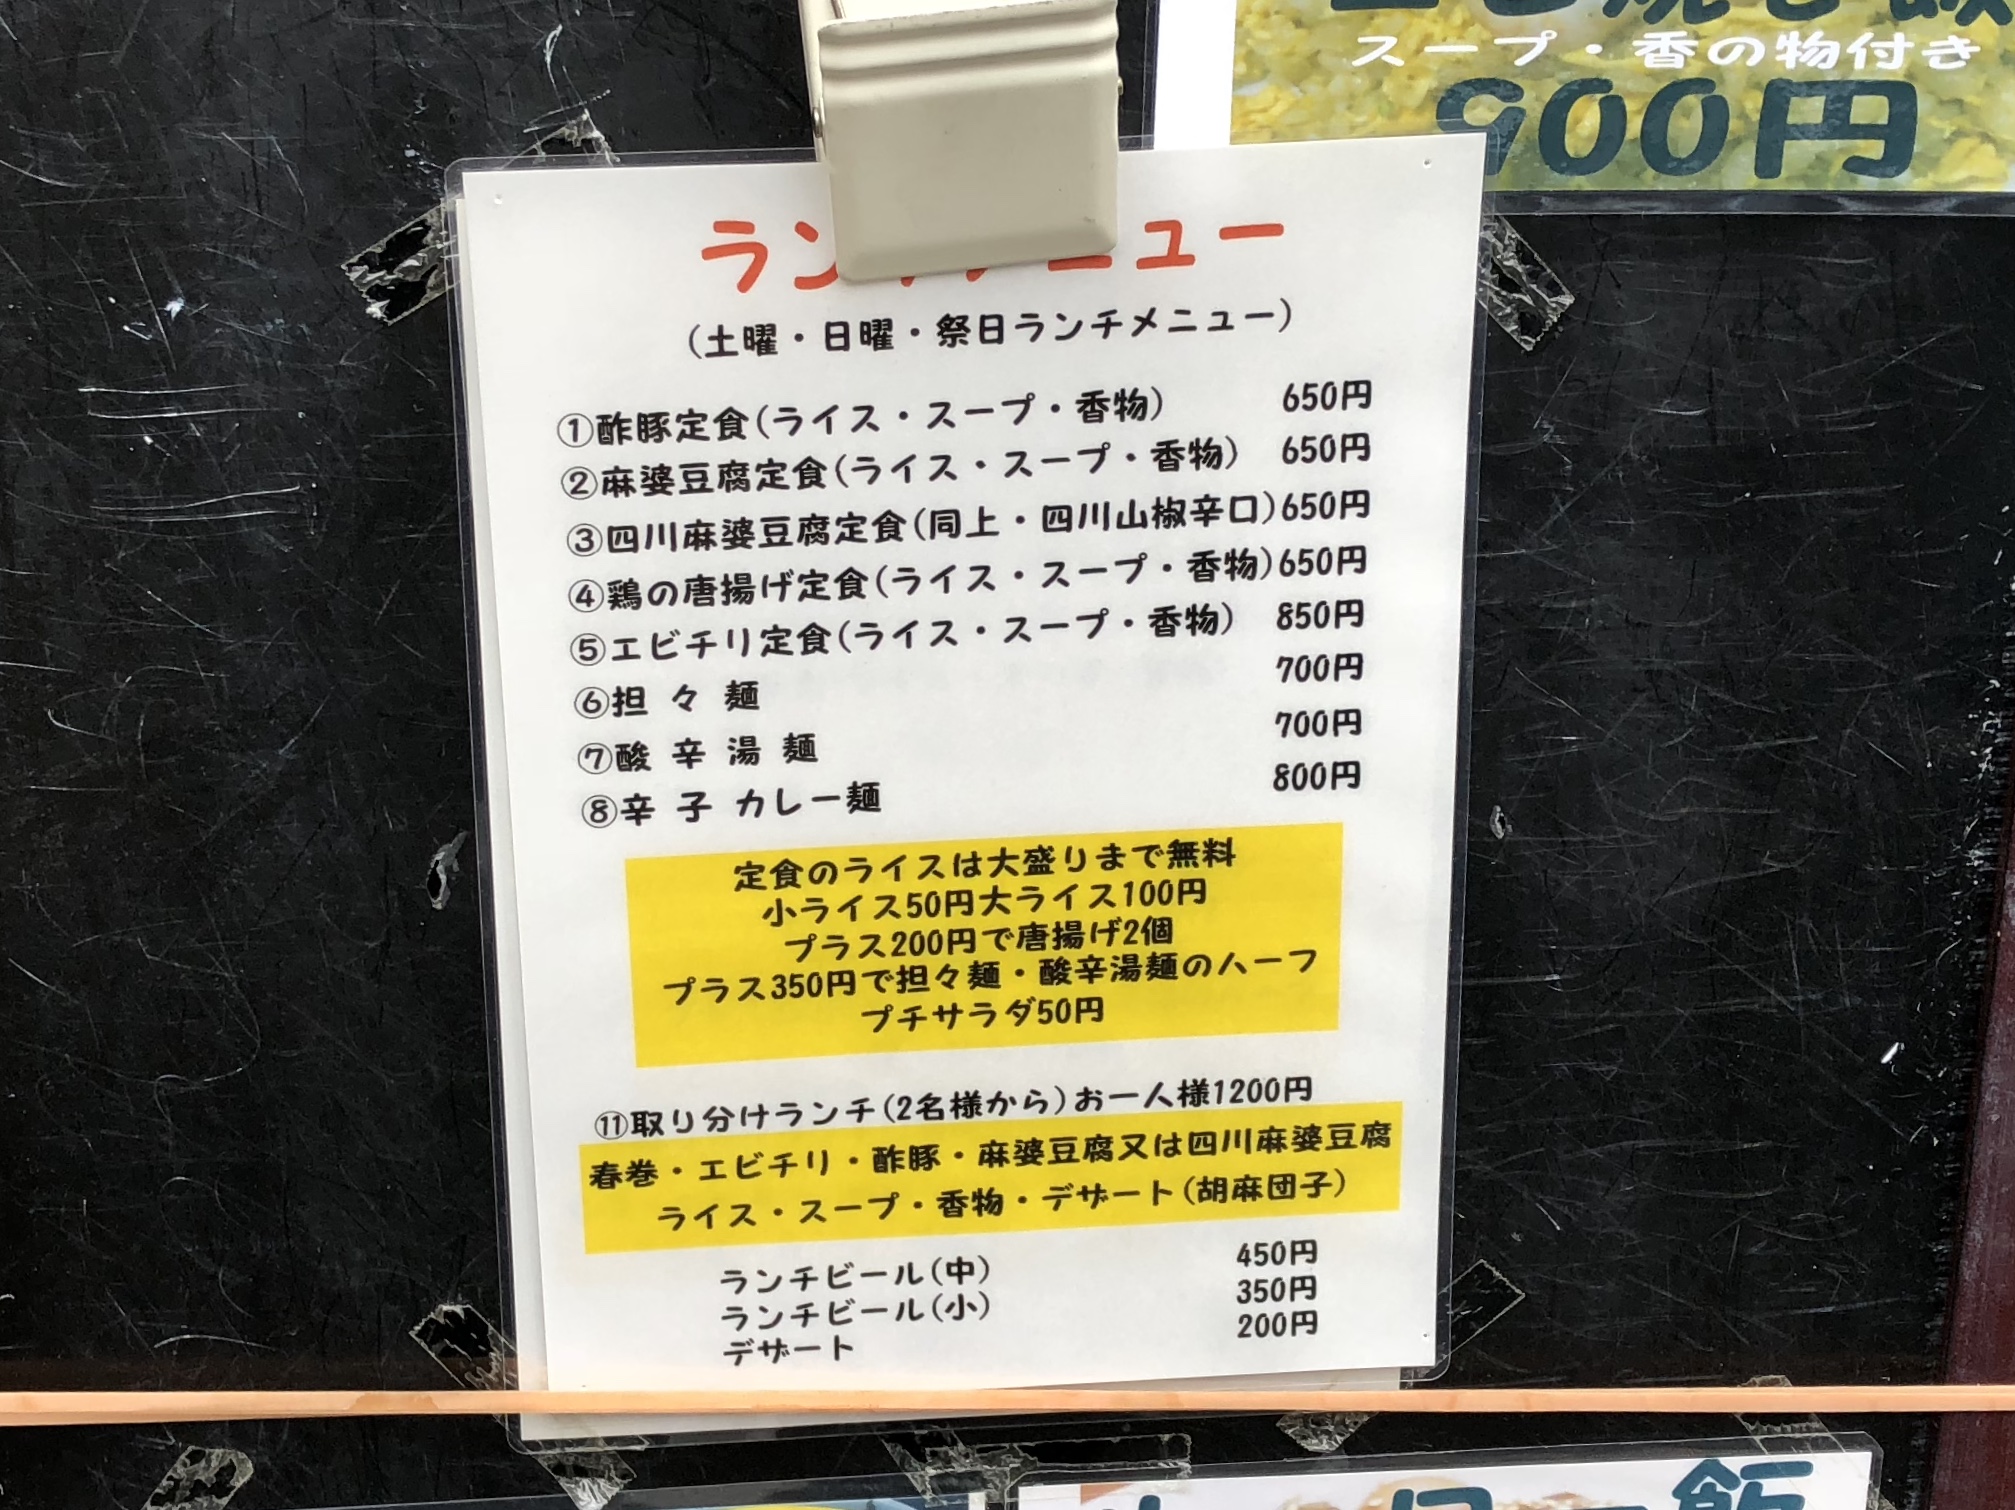 スープ・香の物付き
900円
(土曜・日曜・祭日ランチメニュー)
①酢豚定食(ライス・スープ・香物) 650円
②麻婆豆腐定食(ライス・スープ・香物) 650円
③四川麻婆豆腐定食(同上・四川山椒辛口)650円
④鶏の唐揚げ定食(ライス・スープ・香物)650円
⑤エビチリ定食(ライス・スープ・香物) 850円
⑥担々麺 700円
⑦酸辛湯麺 700円
⑧辛子カレー麺 800円
定食のライスは大盛りまで無料
小ライス50円大ライス100円
プラス200円で唐揚げ2個
プラス350円で担々麺・酸辛湯麺のハーフ
プチサラダ50円
⑪取り分けランチ(2名様から)お一人様1200円
春巻・エビチリ・酢豚・麻婆豆腐又は四川麻婆豆腐
ライス・スープ・香物・デザート(胡麻団子)
ランチビール(中) 450円
ランチビール(小) 350円
デザート 200円